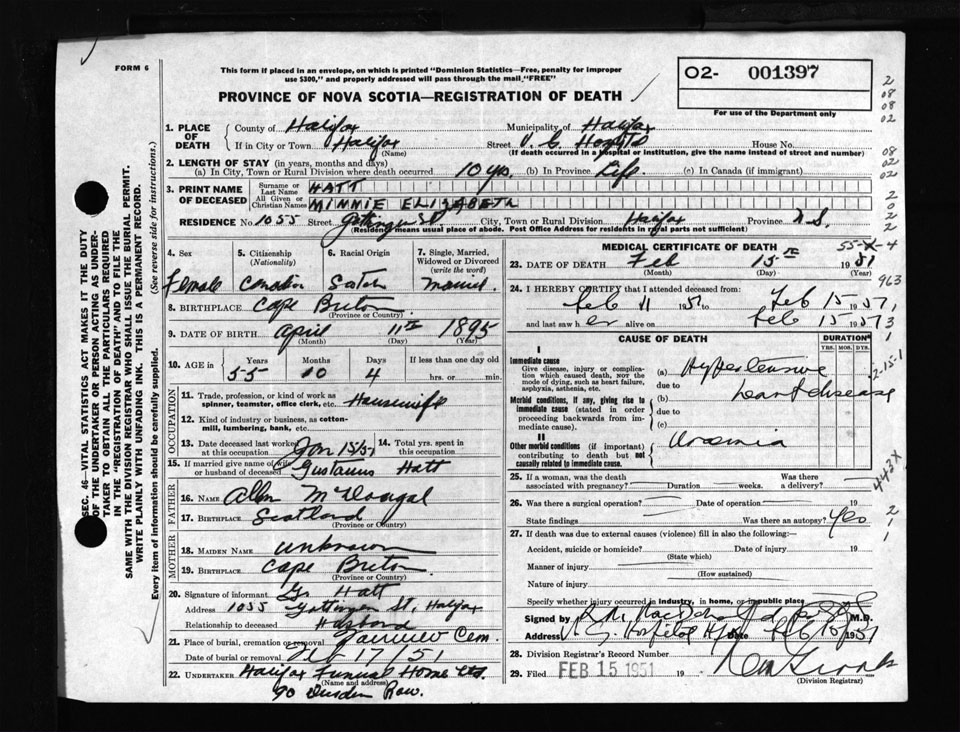 FORM 6
This form if placed in an envelope, on which is printed "Dominion Statistics—Free, penalty for improper
use $300," and properly addressed will pass through the mail "FREE"
PROVINCE OF NOVA SCOTIA—REGISTRATION OF DEATH
O2- 001397
For use of the Department only
2
08
08
02
08
02
02
2
0
2
2
2
SEC. 46—VITAL STATISTICS ACT MAKES IT THE DUTY
OF THE UNDERTAKER OR PERSON ACTING AS UNDER-
TAKER TO OBTAIN ALL THE PARTICULARS REQUIRED
IN THE "REGISTRATION OF DEATH" AND TO FILE THE
SAME WITH THE DIVISION REGISTRAR WHO SHALL ISSUE THE BURIAL PERMIT.
WRITE PLAINLY WITH UNFADING INK. THIS IS A PERMANENT RECORD.
Every item of information should be carefully supplied. (See reverse side for instructions.)
1. PLACE OF DEATH County of Halifax Municipality of Halifax
If in City or Town Halifax Street V. G. House No.
(Name) (If death occurred in a hospital or institution, give the name instead of street and number)
2. LENGTH OF STAY (in years, months and days)
(a) In City, Town or Rural Division where death occurred 10 yrs. (b) In Province Life (c) In Canada (if immigrant)
3. PRINT NAME OF DECEASED Surname or Last Name HATT
All Given or Christian Names MINNIE ELIZABETH
RESIDENCE No. 1055 Street Gottingen St City, Town or Rural Division Halifax Province N.S.
(Residence means usual place of abode. Post Office Address for residents in rural parts not sufficient)
4. Sex 5. Citizenship (Nationality) 6. Racial Origin 7. Single, Married, Widowed or Divorced (write the word)
Female Canadian Scotch Married
8. BIRTHPLACE Cape Breton
(Province or Country)
9. DATE OF BIRTH April 11th 1895
(Month) (Day) (Year)
10. AGE in Years Months Days If less than one day old
55 10 4 hrs. or min.
OCCUPATION
11. Trade, profession, or kind of work as spinner, teamster, office clerk, etc. Housewife
12. Kind of industry or business, as cotton-mill, lumbering, bank, etc.
13. Date deceased last worked at this occupation Jan 15/51 14. Total yrs. spent in this occupation
15. If married give name of wife or husband of deceased Gustavus Hatt
FATHER
16. NAME Allen McDougal
17. BIRTHPLACE Scotland
(Province or Country)
MOTHER
18. MAIDEN NAME unknown
19. BIRTHPLACE Cape Breton
(Province or Country)
20. Signature of informant G. Hatt
Address 1055 Gottingen St, Halifax
Relationship to deceased Husband
21. Place of burial, cremation or removal Fairview Cem.
Date of burial or removal Feb 17/51
22. UNDERTAKER Halifax Funeral Home Ltd.
(Name and address)
90 Dresden Row.
MEDICAL CERTIFICATE OF DEATH
55-X-4
23. DATE OF DEATH Feb 15th 1951
(Month) (Day) (Year)
963
24. I HEREBY CERTIFY that I attended deceased from:
Feb 11 1951 to Feb 15 1951,
and last saw her alive on Feb 15 1951
3
1
CAUSE OF DEATH
DURATION
YRS. MOS. DYS.
I
Immediate cause
Give disease, injury or complication which caused death, NOT the mode of dying, such as heart failure, asphyxia, asthenia, etc.
(a) Hypertensive
due to
heart disease
2-15-1
Morbid conditions, if any, giving rise to immediate cause (stated in order proceeding backwards from immediate cause).
(b)
due to
(c)
II
Other morbid conditions (if important) contributing to death but not causally related to immediate cause.
Uraemia
443X
25. If a woman, was the death associated with pregnancy? Duration weeks. Was there a delivery?
26. Was there a surgical operation? Date of operation 19
State findings Was there an autopsy? Yes
2
1
1
27. If death was due to external causes (violence) fill in also the following:
Accident, suicide or homicide? Date of injury 19
(State which)
Manner of injury
(How sustained)
Nature of injury
Specify whether injury occurred in industry, in home, or in public place
Signed by M.D.
Address V. G. Hospital Hfx Date Feb 15 1951
28. Division Registrar's Record Number
29. Filed FEB 15 1951 19
(Division Registrar)